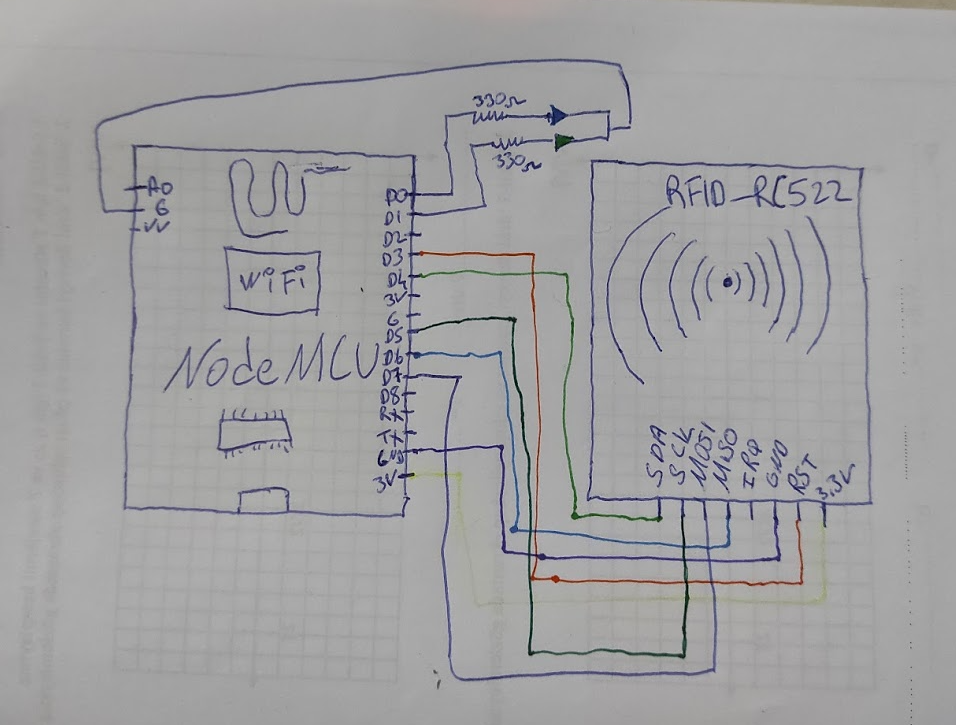 330Ω
330Ω
A0
G
VV
WiFi
NodeMCU
D0
D1
D2
D3
D4
3V
G
D5
D6
D7
D8
RX
TX
GND
3V
RFID-RC522
SDA
SCK
MOSI
MISO
IRQ
GND
RST
3.3V